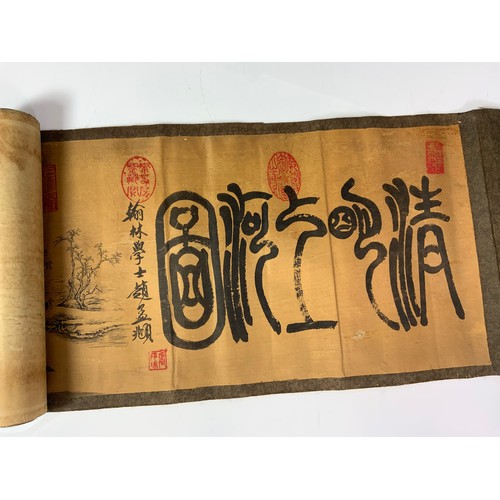 清明上河圖
翰林學士趙孟頫